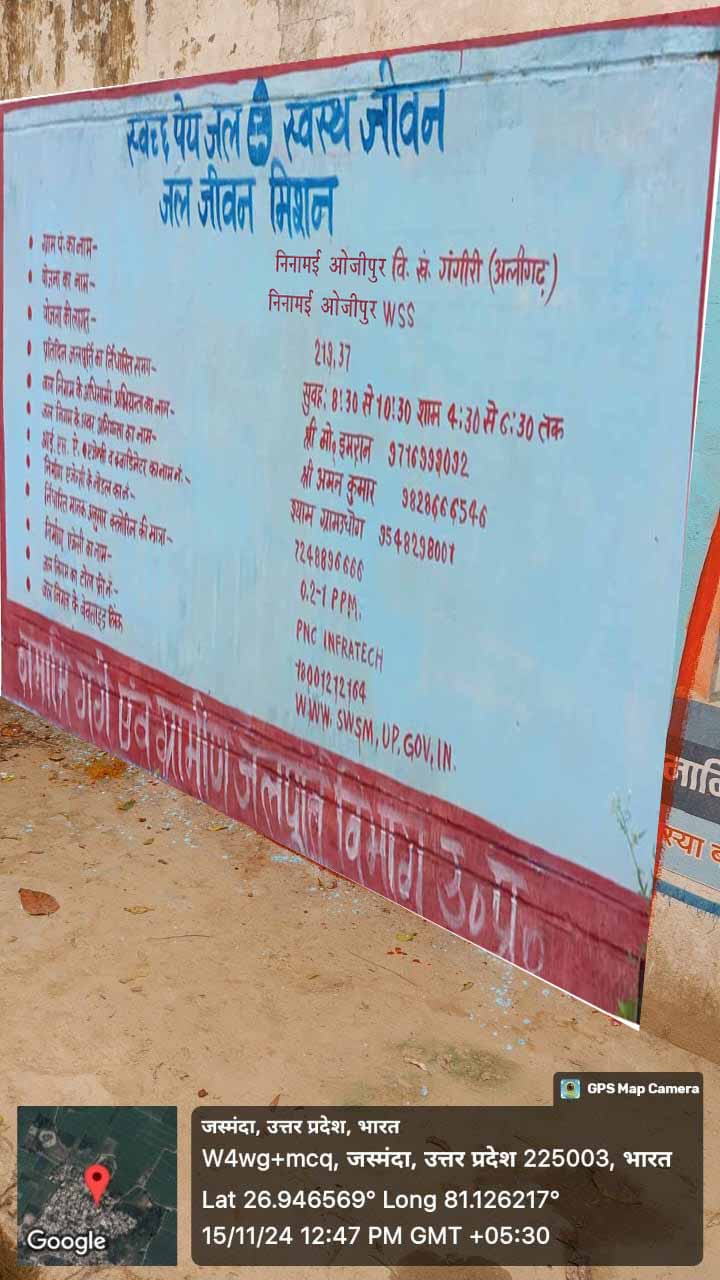 स्वच्छ पेय जल स्वस्थ जीवन
जल जीवन मिशन
ग्राम पं. का नाम- निनामई ओजीपुर वि. खं. गंगीरी (अलीगढ़)
योजना का नाम- निनामई ओजीपुर WSS
योजना की लागत- 219.37
प्रतिदिन जलापूर्ति का निर्धारित समय- सुबह: 8:30 से 10:30 शाम 4:30 से 6:30 तक
जल निगम के अधिशासी अभियन्ता का नाम- श्री मो० इमरान 9716999092
जल निगम के अवर अभियन्ता का नाम- श्री अमन कुमार 9828666546
आई. एस. ए. कोऑर्डिनेटर का नाम नं.- श्याम ग्रामउधोग 9548298001
निर्माण एजेंसी के नोडल का नं- 7248896666
निर्धारित मानक अनुसार क्लोरिन की मात्रा- 0.2-1 PPM.
निर्माण एजेंसी का नाम- PNC INFRATECH
जल निगम का टोल फ्री नं- 18001212164
जल निगम के वेबसाइड लिंक WWW.SWSM,UP,GOV,IN.
नमामि गंगे एंव ग्रामीण जलापूर्ति विभाग उ०प्र०
GPS Map Camera
जस्मंदा, उत्तर प्रदेश, भारत
W4wg+mcq, जस्मंदा, उत्तर प्रदेश 225003, भारत
Lat 26.946569° Long 81.126217°
15/11/24 12:47 PM GMT +05:30
Google